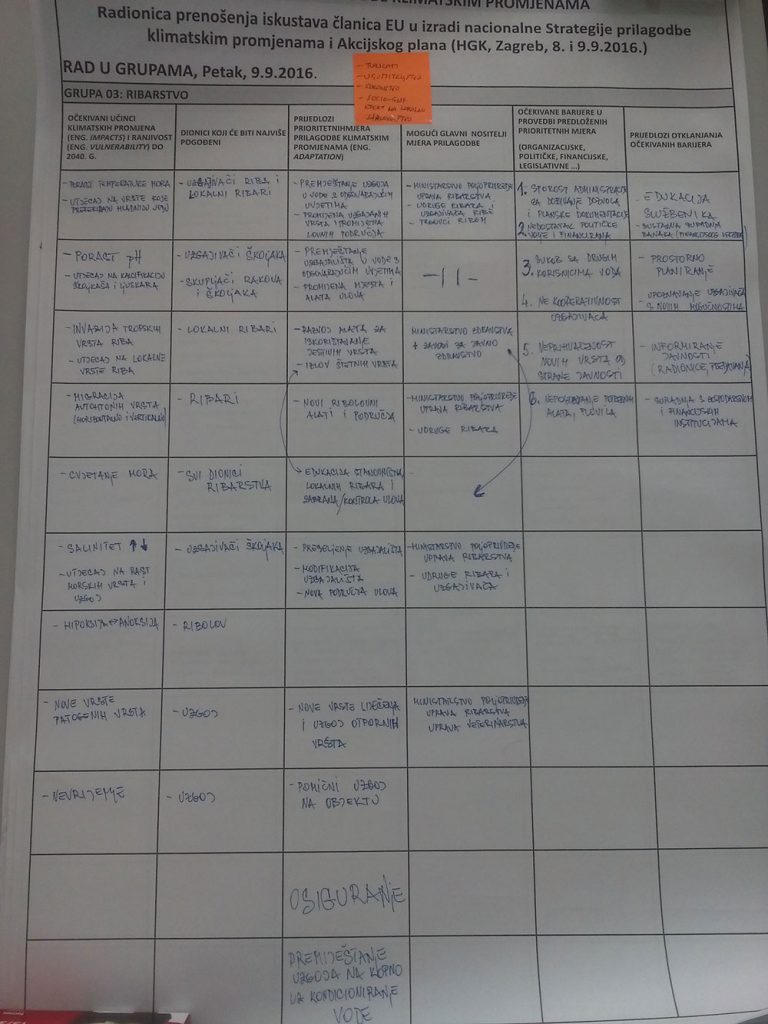 KLIMATSKIM PROMJENAMA
Radionica prenošenja iskustava članica EU u izradi nacionalne Strategije prilagodbe
klimatskim promjenama i Akcijskog plana (HGK, Zagreb, 8. i 9.9.2016.)
RAD U GRUPAMA, Petak, 9.9.2016.
- TURISTI
- UGOSTITELJSTVO
GRUPA 03: RIBARSTVO
OČEKIVANI UČINCI
KLIMATSKIH PROMJENA
(ENG. IMPACTS) I RANJIVOST
(ENG. VULNERABILITY) DO
2040. G.
DIONICI KOJI ĆE BITI NAJVIŠE
POGOĐENI
PRIJEDLOZI
PRIORITETNIHMJERA
PRILAGODBE KLIMATSKIM
PROMJENAMA (ENG.
ADAPTATION)
MOGUĆI GLAVNI NOSITELJI
MJERA PRILAGODBE
OČEKIVANE BARIJERE U
PROVEDBI PREDLOŽENIH
PRIORITETNIH MJERA
(ORGANIZACIJSKE,
POLITIČKE, FINANCIJSKE,
LEGISLATIVNE ...)
PRIJEDLOZI OTKLANJANJA
OČEKIVANIH BARIJERA
- PORAST TEMPERATURE MORA
- UTJECAJ NA VRSTE KOJE
PREFERIRAJU HLADNIJU VODU
- UZGAJIVAČI RIBA I
LOKALNI RIBARI
- PREMJEŠTANJE UZGOJA
U VODE S ODGOVARAJUĆIM
UVJETIMA
- PROMJENA UZGAJANIH
VRSTA I PROMJENA
LOVNIH PODRUČJA
- MINISTARSTVO POLJOPRIVREDE
UPRAVA RIBARSTVA
- UDRUGE RIBARA I
UZGAJIVAČA RIBE
- TRGOVCI RIBOM
1. SPOROST ADMINISTRACIJE
ZA DOBIVANJE DOZVOLA
I PLANSKE DOKUMENTACIJE
2. NEDOSTATAK POLITIČKE
VOLJE I FINANCIRANJA
- EDUKACIJA
SLUŽBENIKA
- PORAST pH
- UTJECAJ NA KALCIFIKACIJU
ŠKOLJKAŠA I LJUSKARA
- UZGAJIVAČI ŠKOLJAKA
- SKUPLJAČI RAKOVA
I ŠKOLJAKA
- PREMJEŠTANJE
UZGAJALIŠTA U VODE S
ODGOVARAJUĆIM UVJETIMA
- PROMJENA MJESTA I
ALATA ULOVA
- 11 -
3. SUKOB SA DRUGIM
KORISNICIMA VODA
4. NE KOOPERATIVNOST
UZGAJIVAČA
- PROSTORNO
PLANIRANJE
- UPOZNAVANJE UZGAJIVAČA
S NOVIM MOGUĆNOSTIMA
- INVAZIJA TROPSKIH
VRSTA RIBA
- UTJECAJ NA LOKALNE
VRSTE RIBA
- LOKALNI RIBARI
- RAZVOJ ALATA ZA
ISKORIŠTAVANJE
JESTIVIH VRSTA
- IZLOV ŠTETNIH VRSTA
MINISTARSTVO ZDRAVSTVA
+ ZAVODI ZA JAVNO
ZDRAVSTVO
5. NEPRIHVAĆENOST
NOVIH VRSTA OD
STRANE JAVNOSTI
- INFORMIRANJE
JAVNOSTI
- MIGRACIJA
AUTOHTONIH VRSTA
(HORIZONTALNO I VERTIKALNO)
- RIBARI
- NOVI RIBOLOVNI
ALATI I PODRUČJA
- MINISTARSTVO POLJOPRIVREDE
UPRAVA RIBARSTVA
- UDRUGE RIBARA
6. NEPOSJEDOVANJE POTREBNIH
ALATA, PLOVILA
- SURADNJA S GOSPODARSKIM
I FINANCIJSKIM
INSTITUCIJAMA
- CVJETANJE MORA
- SVI DIONICI
RIBARSTVA
- EDUKACIJA STANOVNIŠTVA,
LOKALNIH RIBARA I
ZABRANA/KONTROLA ULOVA
- SALINITET ↑↓
- UTJECAJ NA RAST
MORSKIH VRSTA I
UZGOJ
- UZGAJIVAČI ŠKOLJAKA
- PRESELJENJE UZGAJALIŠTA
- MODIFIKACIJA
UZGAJALIŠTA
- NOVA PODRUČJA ULOVA
- MINISTARSTVO POLJOPRIVREDE
UPRAVA RIBARSTVA
- UDRUGE RIBARA I
UZGAJIVAČA
- HIPOKSIJA ↔ ANOKSIJA
- RIBOLOV
- NOVE VRSTE
PATOGENIH VRSTA
- UZGOJ
- NOVE VRSTE LIJEČENJA
I UZGOJ OTPORNIH
VRSTA
MINISTARSTVO POLJOPRIVREDE
UPRAVA RIBARSTVA
UPRAVA VETERINARSTVA
- NEVRIJEME
- UZGOJ
- POMIČNI UZGOJ
NA OBJEKTU
OSIGURANJE
PREMJEŠTANJE
UZGOJA NA KOPNO
UZ KONDICIONIRANJE
VODE